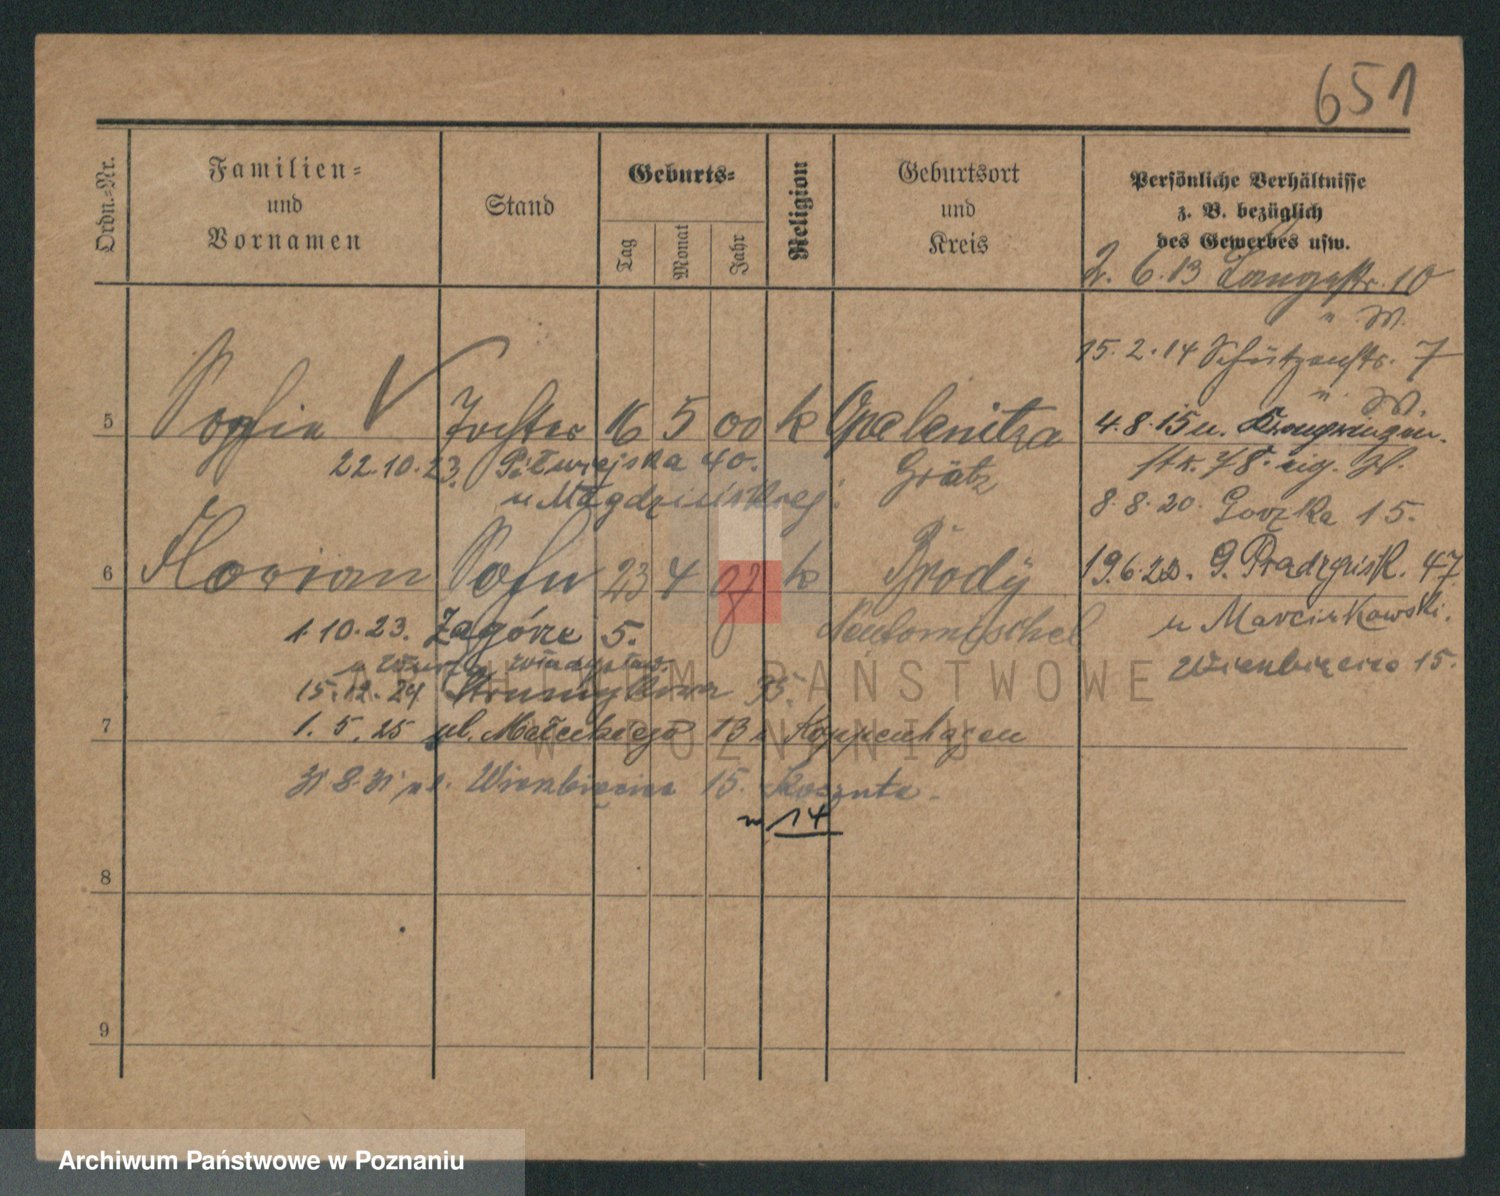 651
Ordn.-Nr.
Familien-
und
Vornamen
Stand
Geburts-
Tag
Monat
Jahr
Religion
Geburtsort
und
Kreis
Persönliche Verhältnisse
z. B. bezüglich
des Gewerbes usw.
2. 6. 13 Langestr. 10
" W.
15. 2. 14 Schützenstr. 7
" W.
5 Sophie Tochter 16 5 00 k Opalenitza
4. 8. 15 u.
22.10.23. 40.
Grätz
str. 78. eig. W.
u Magdzińskiej.
8. 8. 20 Gorzka 15.
6 Florian Sohn 23 4 07 k Brody
19.6.22. G. 47.
1.10.23. Zagórze 5.
Neutomischel
u Marcinkowski.
Władysław.
Wierzbięcice 15.
15.12.24 Strumykowa 35.
7
1. 5. 25 ul. Małeckiego 13 u Koppenhagen
31 8. 31 ul. Wierzbięcice 15.
m 14
8
9
ARCHIWUM PAŃSTWOWE
W POZNANIU
Archiwum Państwowe w Poznaniu